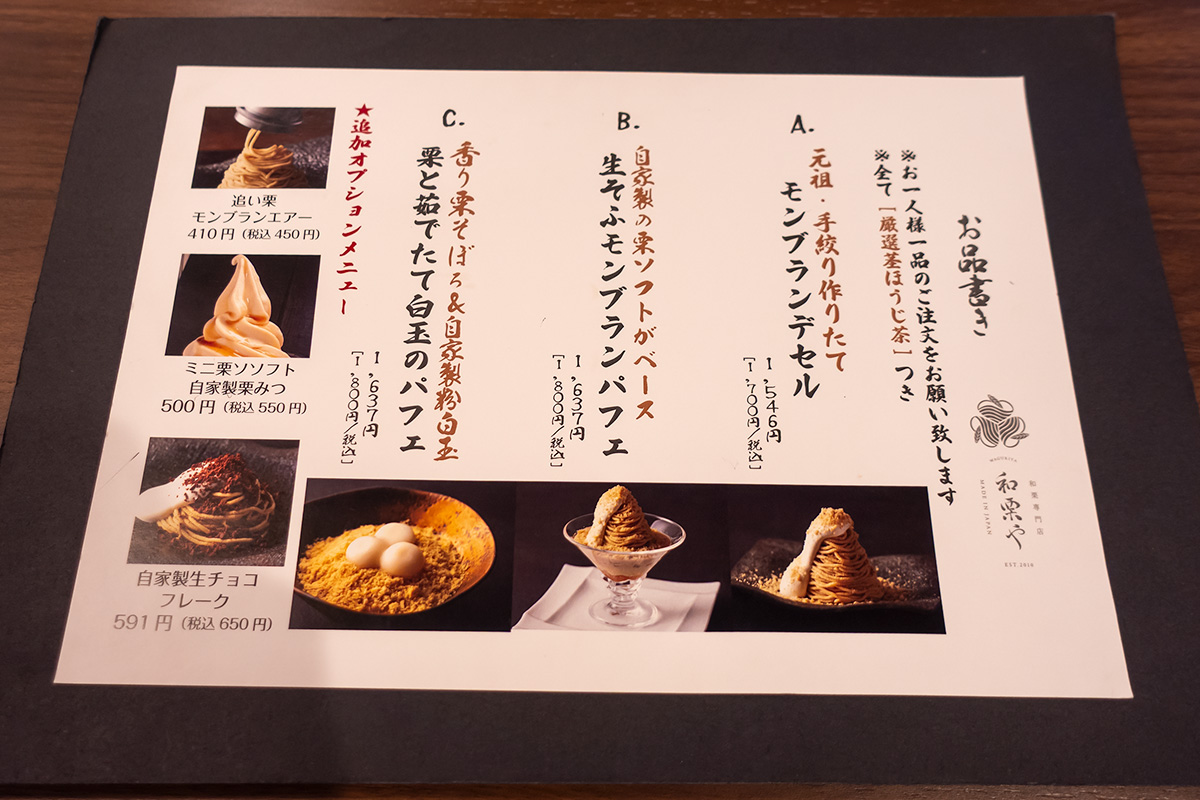 お品書き
※お一人様一品のご注文をお願い致します
※全て「厳選茎ほうじ茶」つき
A.
元祖・手絞り作りたて
モンブランデセル
1,546円
[1,700円/税込]
B.
自家製の栗ソフトがベース
生そふモンブランパフェ
1,637円
[1,800円/税込]
C.
香り栗そぼろ&自家製粉白玉
栗と茹でたて白玉のパフェ
1,637円
[1,800円/税込]
★追加オプションメニュー
追い栗
モンブランエアー
410円(税込 450円)
ミニ栗ソソフト
自家製栗みつ
500円(税込 550円)
自家製生チョコ
フレーク
591円(税込 650円)
WAGURIYA
和栗専門店
和栗や
MADE IN JAPAN
EST.2010